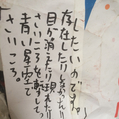 したいかです。
存在したりしなかったり
目が消えたり現れたり
さいころを転して、
青い星雲で
さいころ。